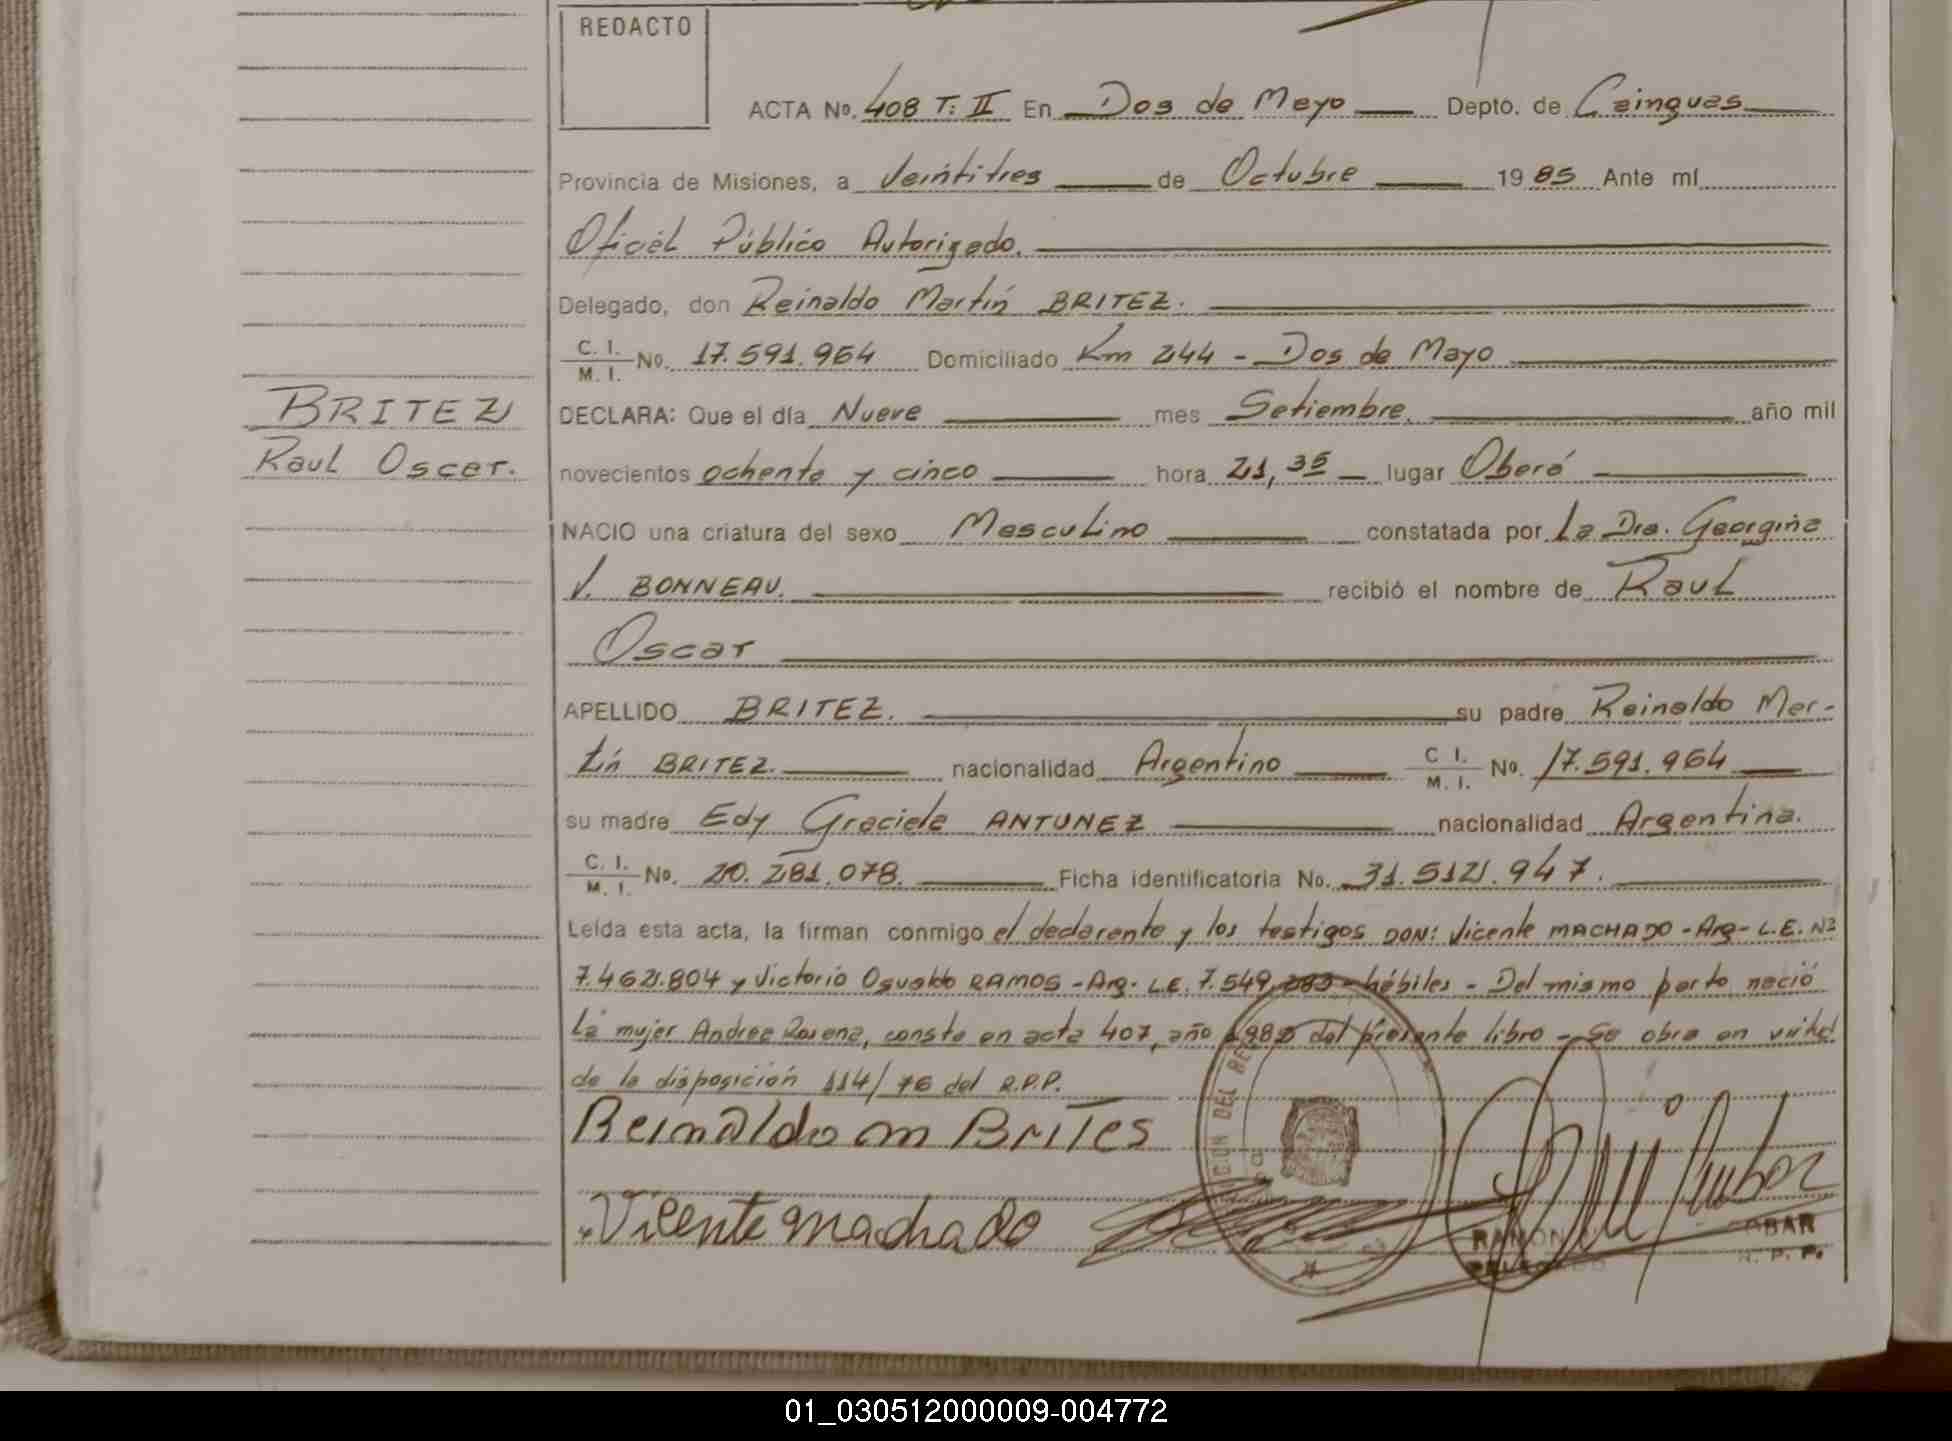 REDACTO
ACTA No. 408 T: II En Dos de Mayo Depto. de Cainguas
Provincia de Misiones, a Veintitres de Octubre 1985 Ante mí
Oficial Público Autorizado.
Delegado, don Reinaldo Martín BRITEZ.
C. I. / M. I. No. 17.591.964 Domiciliado Km 244 - Dos de Mayo
BRITEZ
Raul Oscar.
DECLARA: Que el día Nueve mes Setiembre. año mil
novecientos ochenta y cinco hora 21,35 lugar Oberá
NACIO una criatura del sexo Masculino constatada por La Dra. Georgina
V. BONNEAU. recibió el nombre de Raul
Oscar
APELLIDO BRITEZ. su padre Reinaldo Mar-
tín BRITEZ. nacionalidad Argentino C I. / M. I. No. 17.591.964
su madre Edy Graciela ANTUNEZ nacionalidad Argentina.
C. I. / M. I. No. 20.281.078. Ficha identificatoria No. 31.512.947.
Leída esta acta, la firman conmigo el declarante y los testigos DON: Vicente MACHADO - Arg - L.E. Nº
7.462.804 y Victorio Osvaldo RAMOS - Arg. L.E. 7.549. hábiles - Del mismo parto nació
La mujer Andrea Rosena, consta en acta 407, año del presente libro - Se obra en virtud
de la disposición 114/76 del R.P.P.
Reinaldo m Brites
Vicente machado
RAMON
DELEGADO R. P. P.
01_030512000009-004772